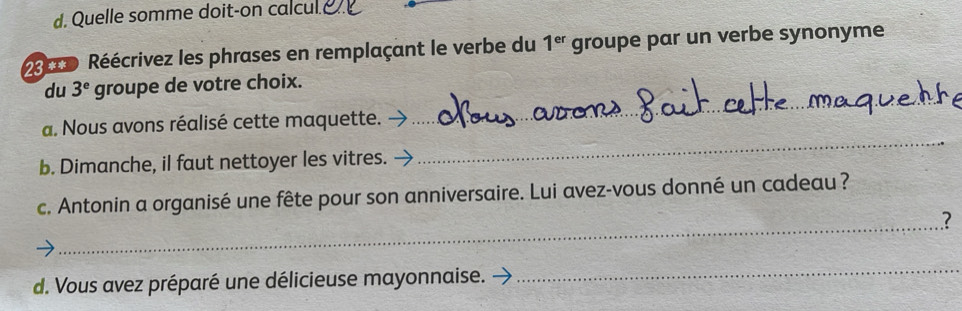 d. Quelle somme doit-on calculer
23** Réécrivez les phrases en remplaçant le verbe du 1er groupe par un verbe synonyme
du 3e groupe de votre choix.
a. Nous avons réalisé cette maquette. → Nous avons fait cette maquette
b. Dimanche, il faut nettoyer les vitres. →
c. Antonin a organisé une fête pour son anniversaire. Lui avez-vous donné un cadeau ?
→ ?
d. Vous avez préparé une délicieuse mayonnaise. →